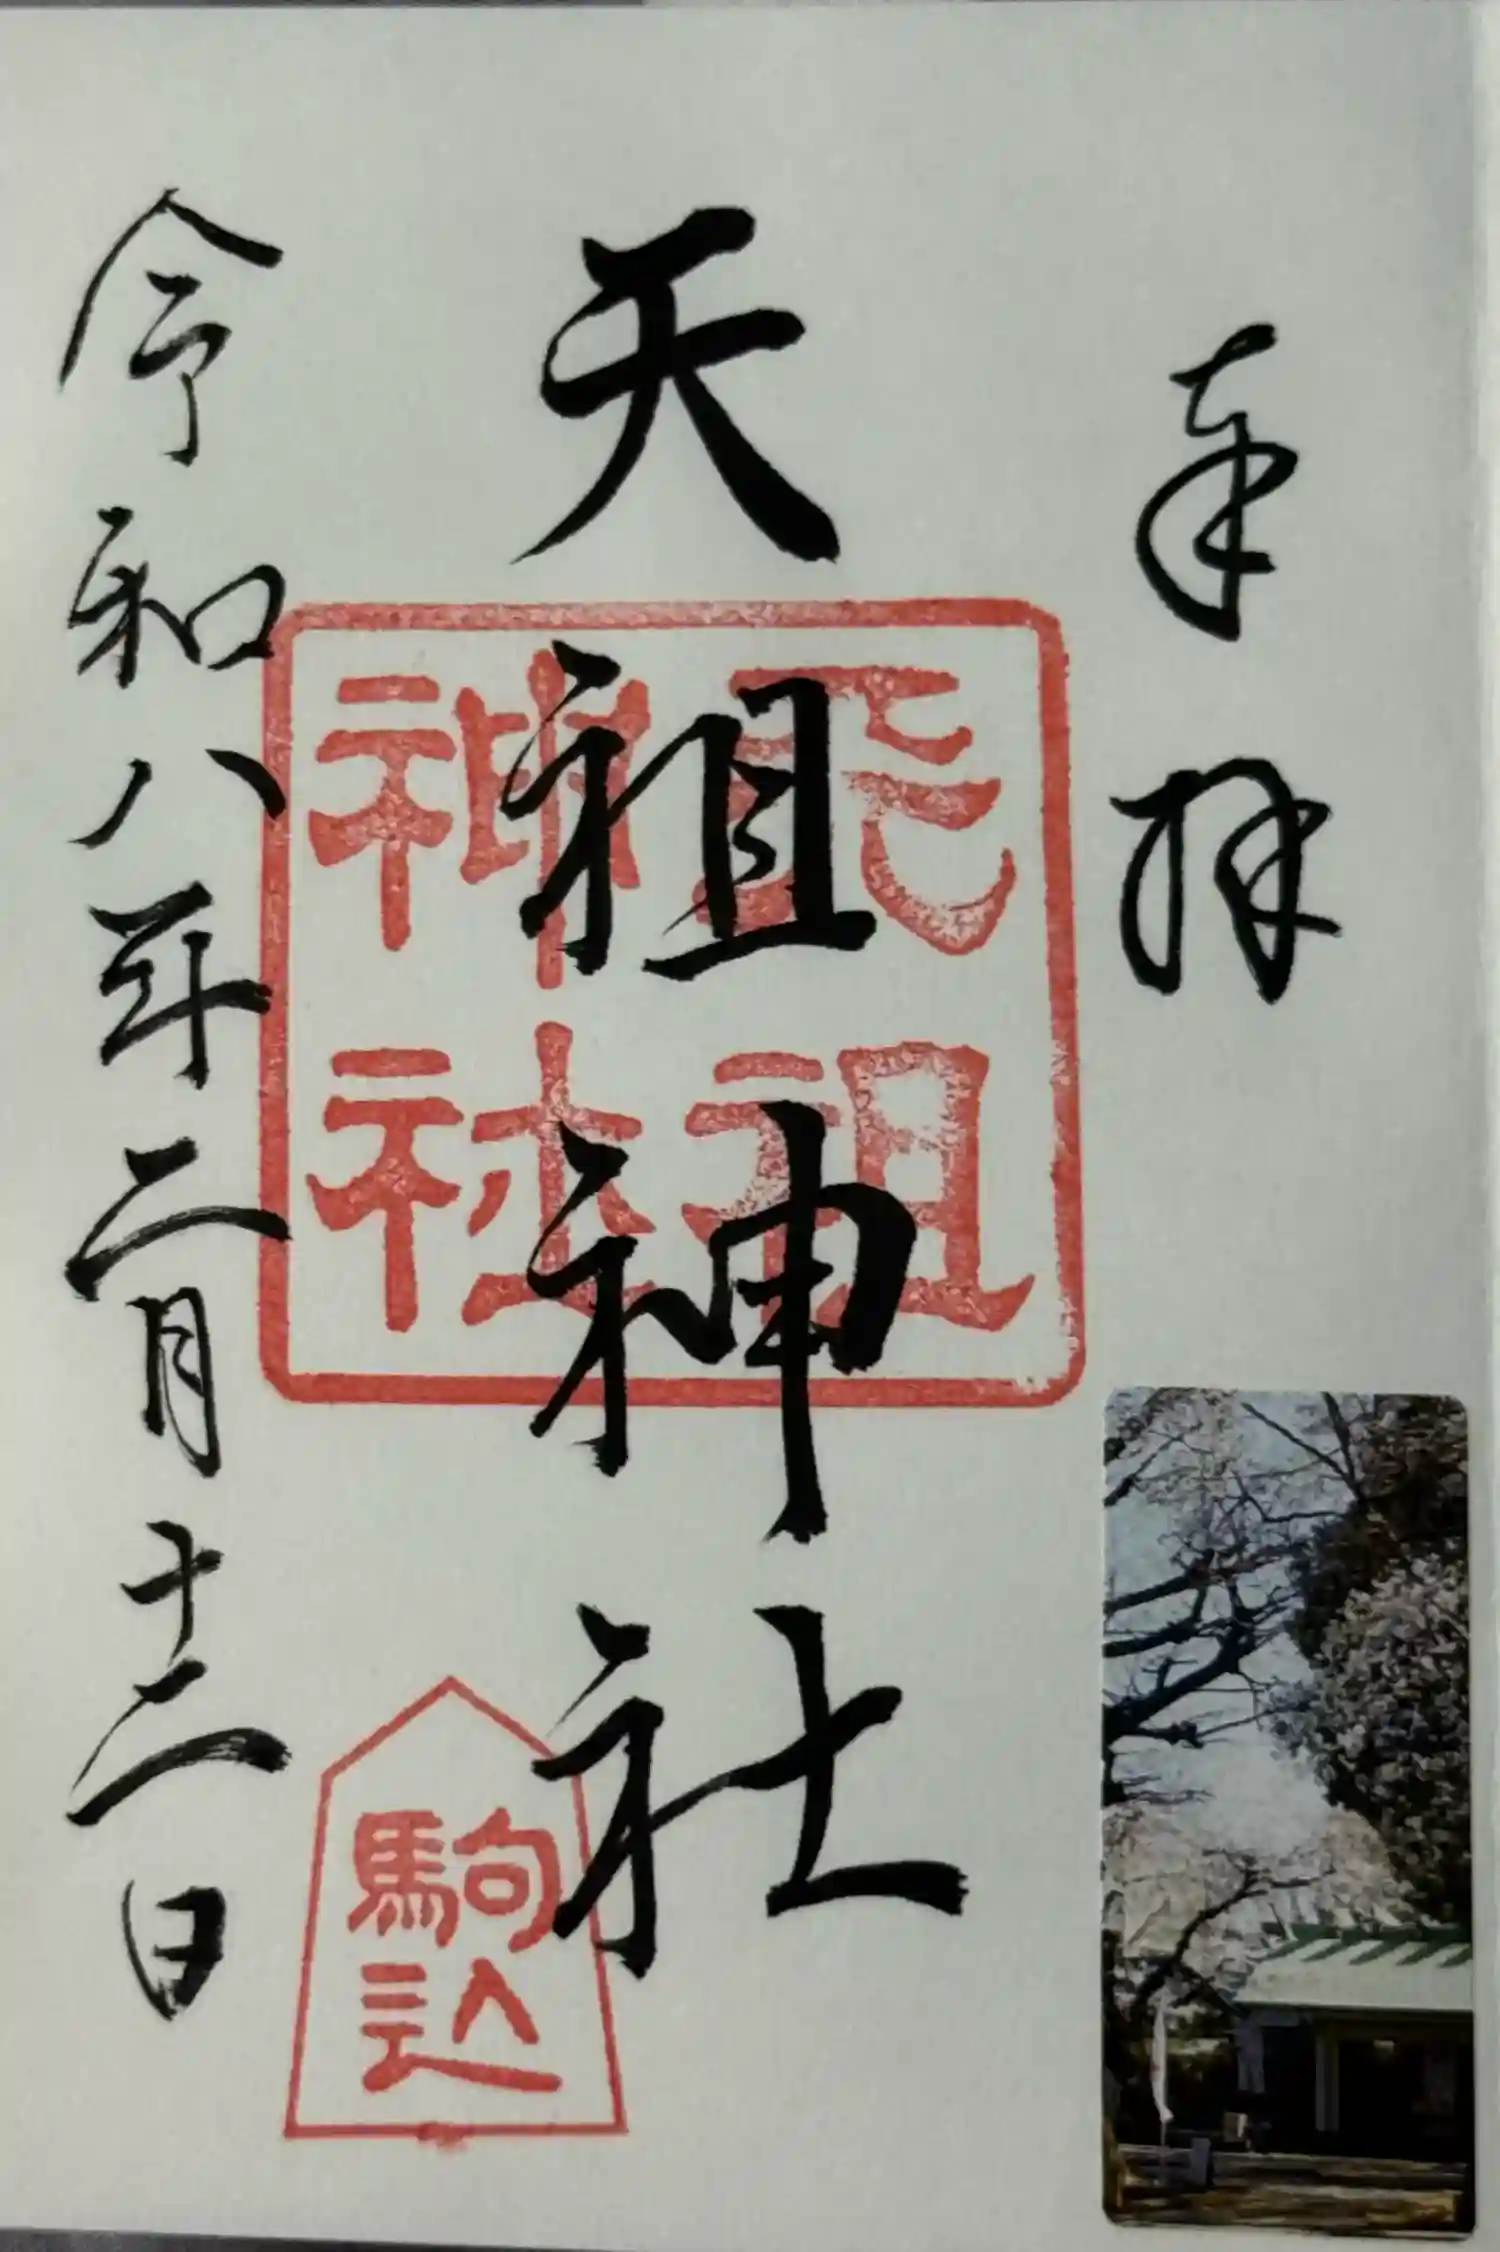 奉拝
天祖神社
令和八年二月十二日
天祖
神社
駒込